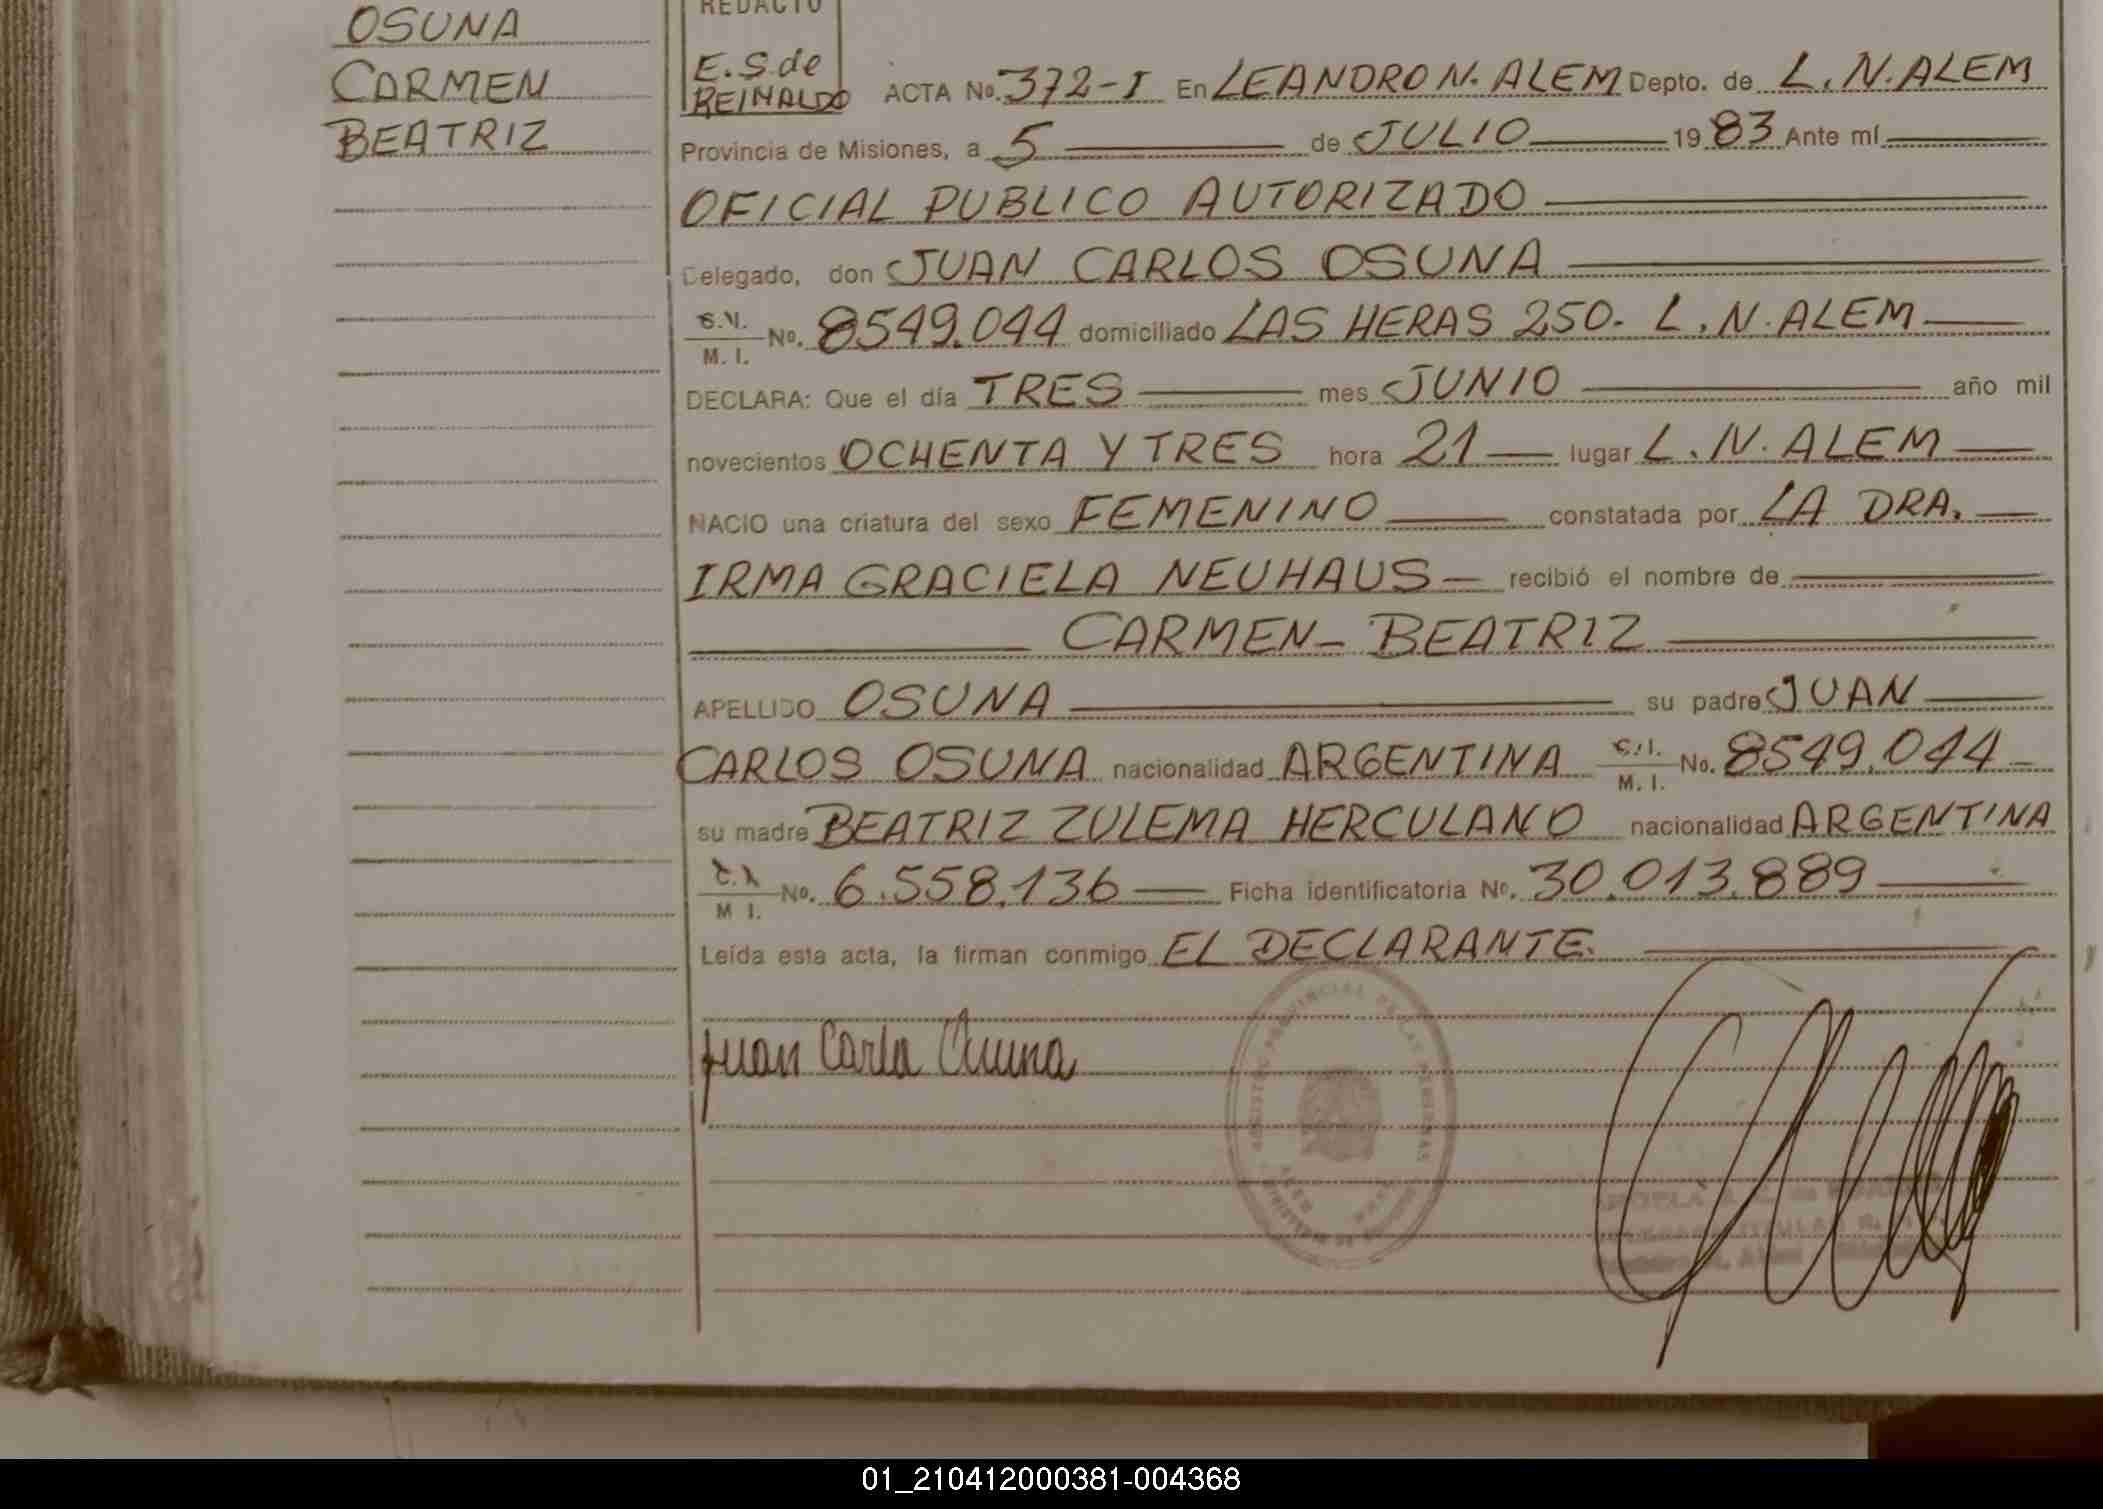 OSUNA
CARMEN
BEATRIZ
REDACTO
E.S. de
REINALDO
ACTA No. 372-I En LEANDRO N. ALEM Depto. de L. N. ALEM
Provincia de Misiones, a 5 de JULIO 19 83 Ante mí
OFICIAL PUBLICO AUTORIZADO
Delegado, don JUAN CARLOS OSUNA
C.I. M. I. No. 8549.044 domiciliado LAS HERAS 250- L. N. ALEM
DECLARA: Que el día TRES mes JUNIO año mil
novecientos OCHENTA Y TRES hora 21 lugar L. N. ALEM
NACIO una criatura del sexo FEMENINO constatada por LA DRA.
IRMA GRACIELA NEUHAUS recibió el nombre de
CARMEN- BEATRIZ
APELLIDO OSUNA su padre JUAN
CARLOS OSUNA nacionalidad ARGENTINA C.I. M. I. No. 8549.044
su madre BEATRIZ ZULEMA HERCULANO nacionalidad ARGENTINA
C.I. M I. No. 6.558.136 Ficha identificatoria No. 30.013.889
Leída esta acta, la firman conmigo EL DECLARANTE.
Juan Carlo Osuna
REGISTRO PROVINCIAL DE LAS PERSONAS
MINISTERIO DE GOBIERNO
01_210412000381-004368